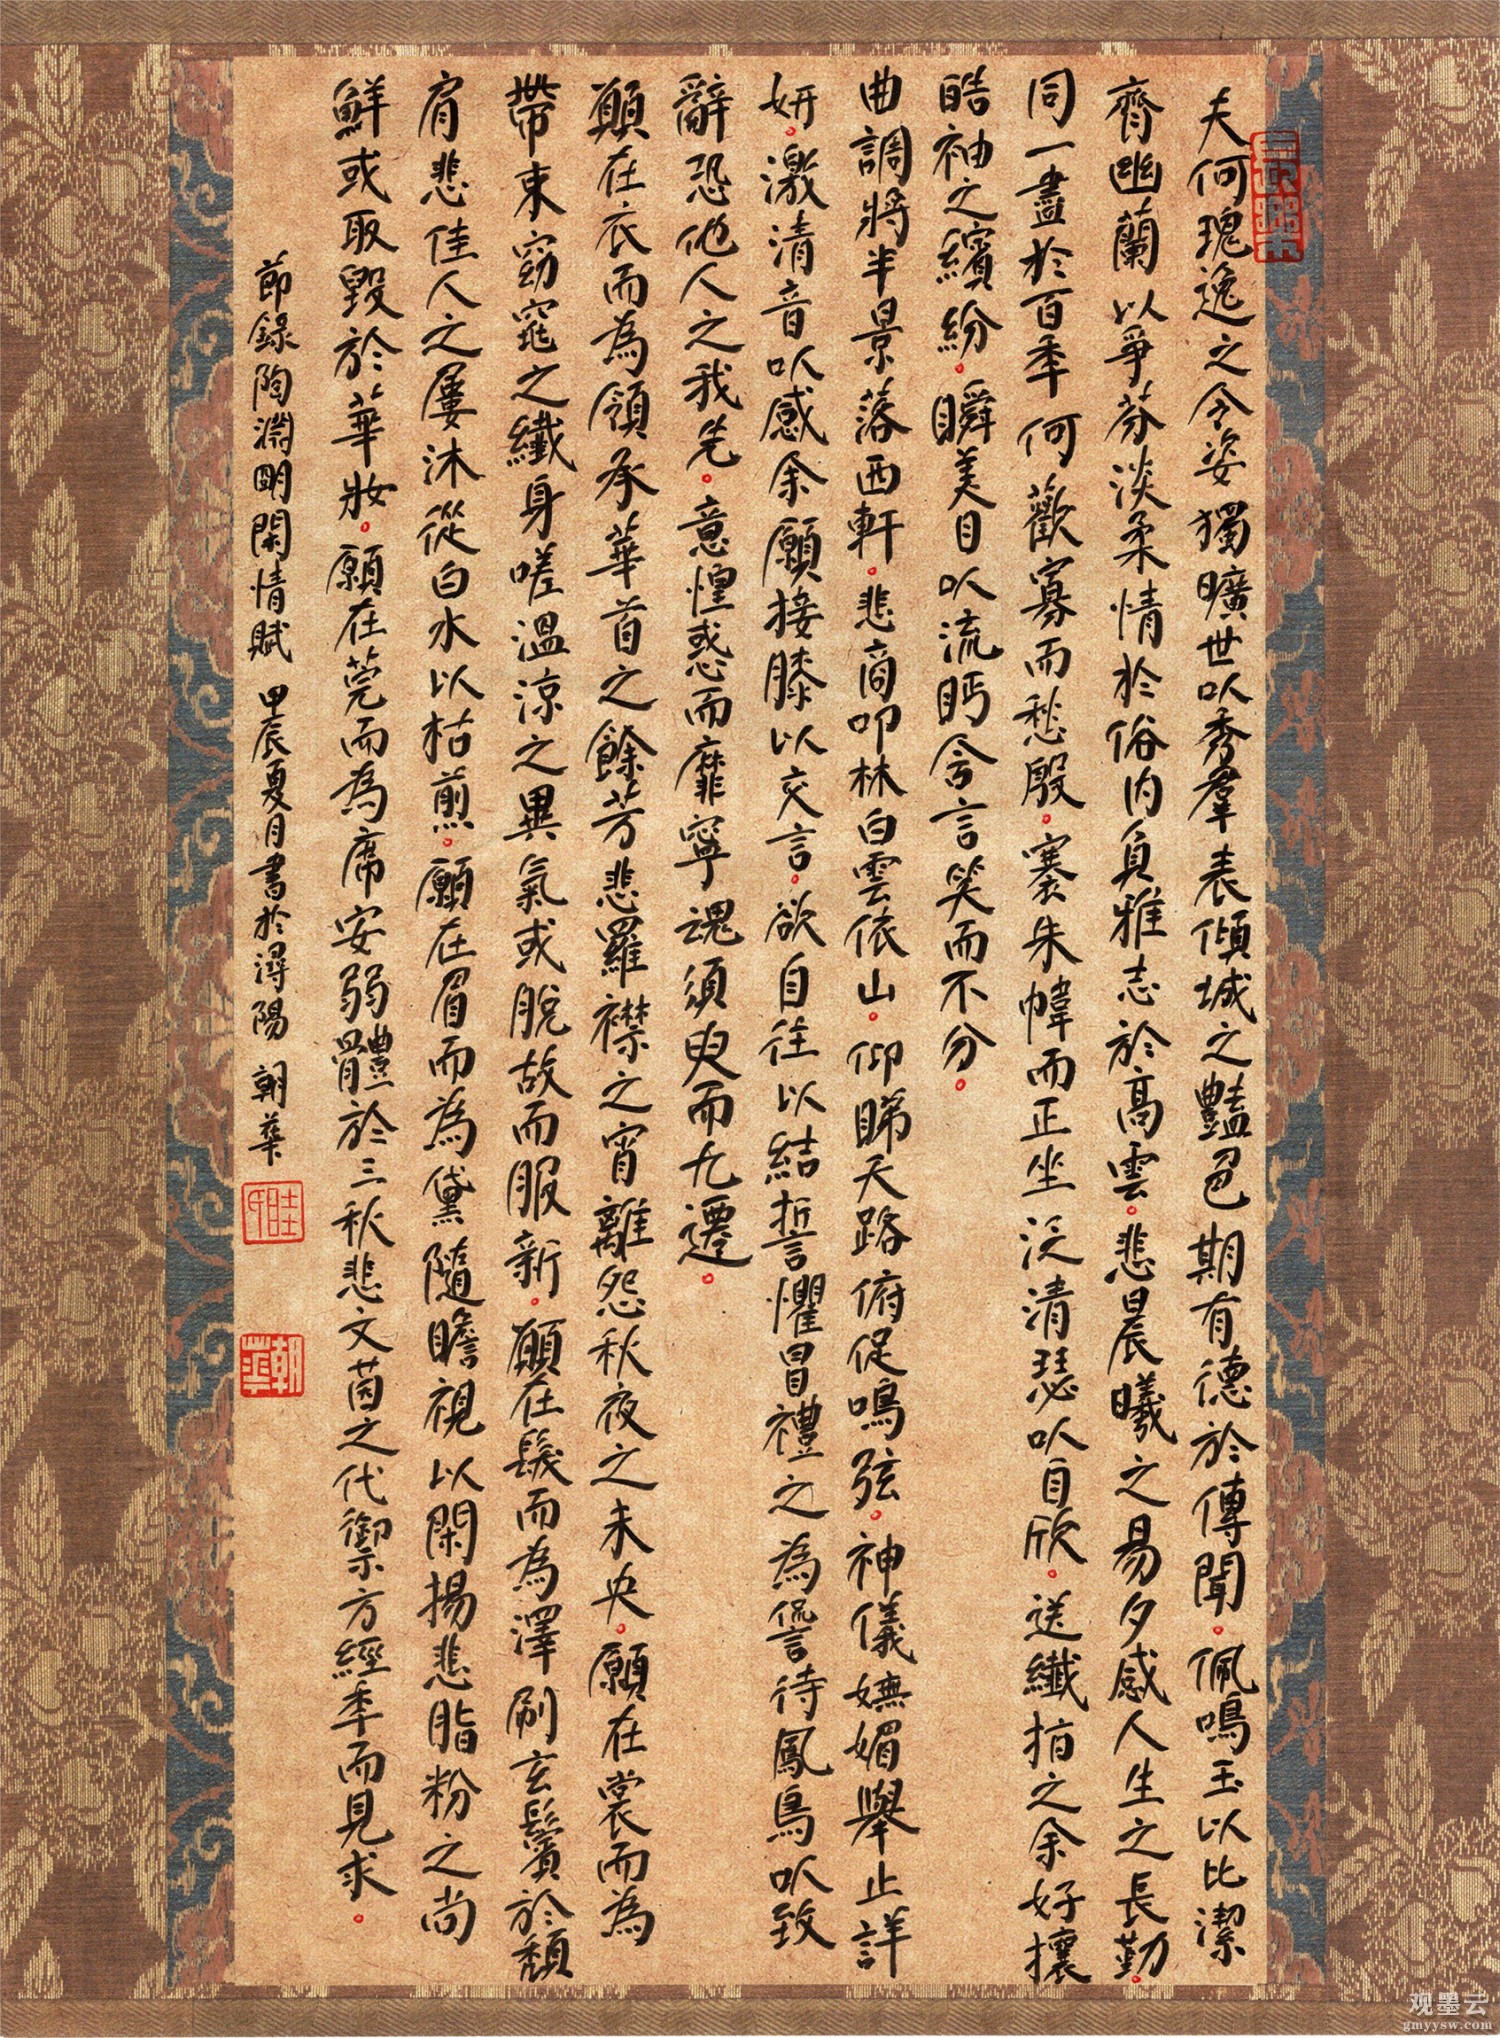 夫何瑰逸之令姿獨曠世以秀羣表傾城之豔色期有德於傳聞。佩鳴玉以比潔
齊幽蘭以爭芬淡柔情於俗內負雅志於高雲。悲晨曦之易夕感人生之長勤。
同一盡於百年何歡寡而愁殷。褰朱幃而正坐泛清瑟以自欣。送纖指之余好攘
皓袖之繽紛。瞬美目以流眄含言笑而不分。
曲調將半景落西軒。悲商叩林白雲依山。仰睇天路俯促鳴弦。神儀嫵媚舉止詳
妍。激清音以感余願接膝以交言。欲自往以結誓懼冒禮之為諐待鳳鳥以致
辭恐他人之我先。意惶惑而靡寧魂須臾而九遷。
願在衣而為領承華首之餘芳悲羅襟之宵離怨秋夜之未央。願在裳而為
帶束窈窕之纖身嗟溫涼之異氣或脫故而服新。願在髮而為澤刷玄鬢於頹
肩悲佳人之屢沐從白水以枯煎。願在眉而為黛隨瞻視以閑揚悲脂粉之尚
鮮或取毀於華妝。願在莞而為席安弱體於三秋悲文茵之代御方經年而見求。
節錄陶淵明閑情賦 甲辰夏月書於潯陽 朝華
朝華
观墨云
gmyysw.com